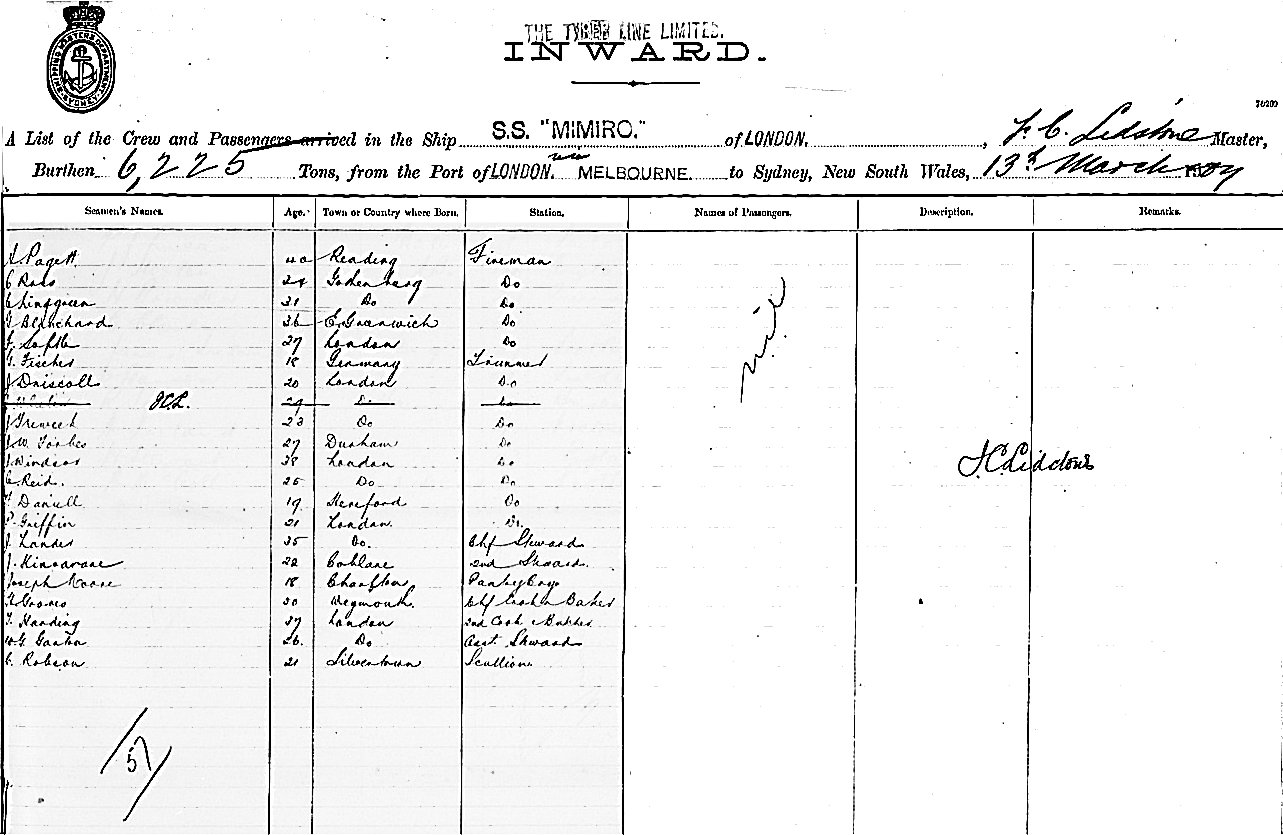 SHIPPING MASTERS DEPARTMENT SYDNEY
THE TYSER LINE LIMITED.
INWARD.
70209
A List of the Crew and Passengers arrived in the Ship S.S. "MIMIRO." of LONDON. , Master,
via
Burthen 6,225 Tons, from the Port of LONDON. MELBOURNE. to Sydney, New South Wales, 13th March
Seamen's Names. Age. Town or Country where Born. Station. Names of Passengers. Description. Remarks.
A Pagett 40 Reading Fireman
C Ross 24 Gothenburg Do
31 Do Do
nil
Blanchard 36 E. Greenwich Do
27 London Do
G. Fischer 18 Germany Trimmer
J Driscoll 20 London Do
29 Do Do
J Do Do
J. W. Forbes 27 Durham Do
J Windsor 38 London Do
C Reid. 25 Do Do
Daniell 19 Hereford Do
P. Griffin 21 London. Do.
J. Lander 35 Do. Chf Steward
J. 22 2nd Steward.
Joseph Moore 18 Charlton Pantry Boy
Groves 30 Weymouth. Chf Cook & Baker
T. Harding 37 London 2nd Cook & Butcher
W. G. 26. Do Asst. Steward
C. Robson 21 Silvertown Scullion.
57